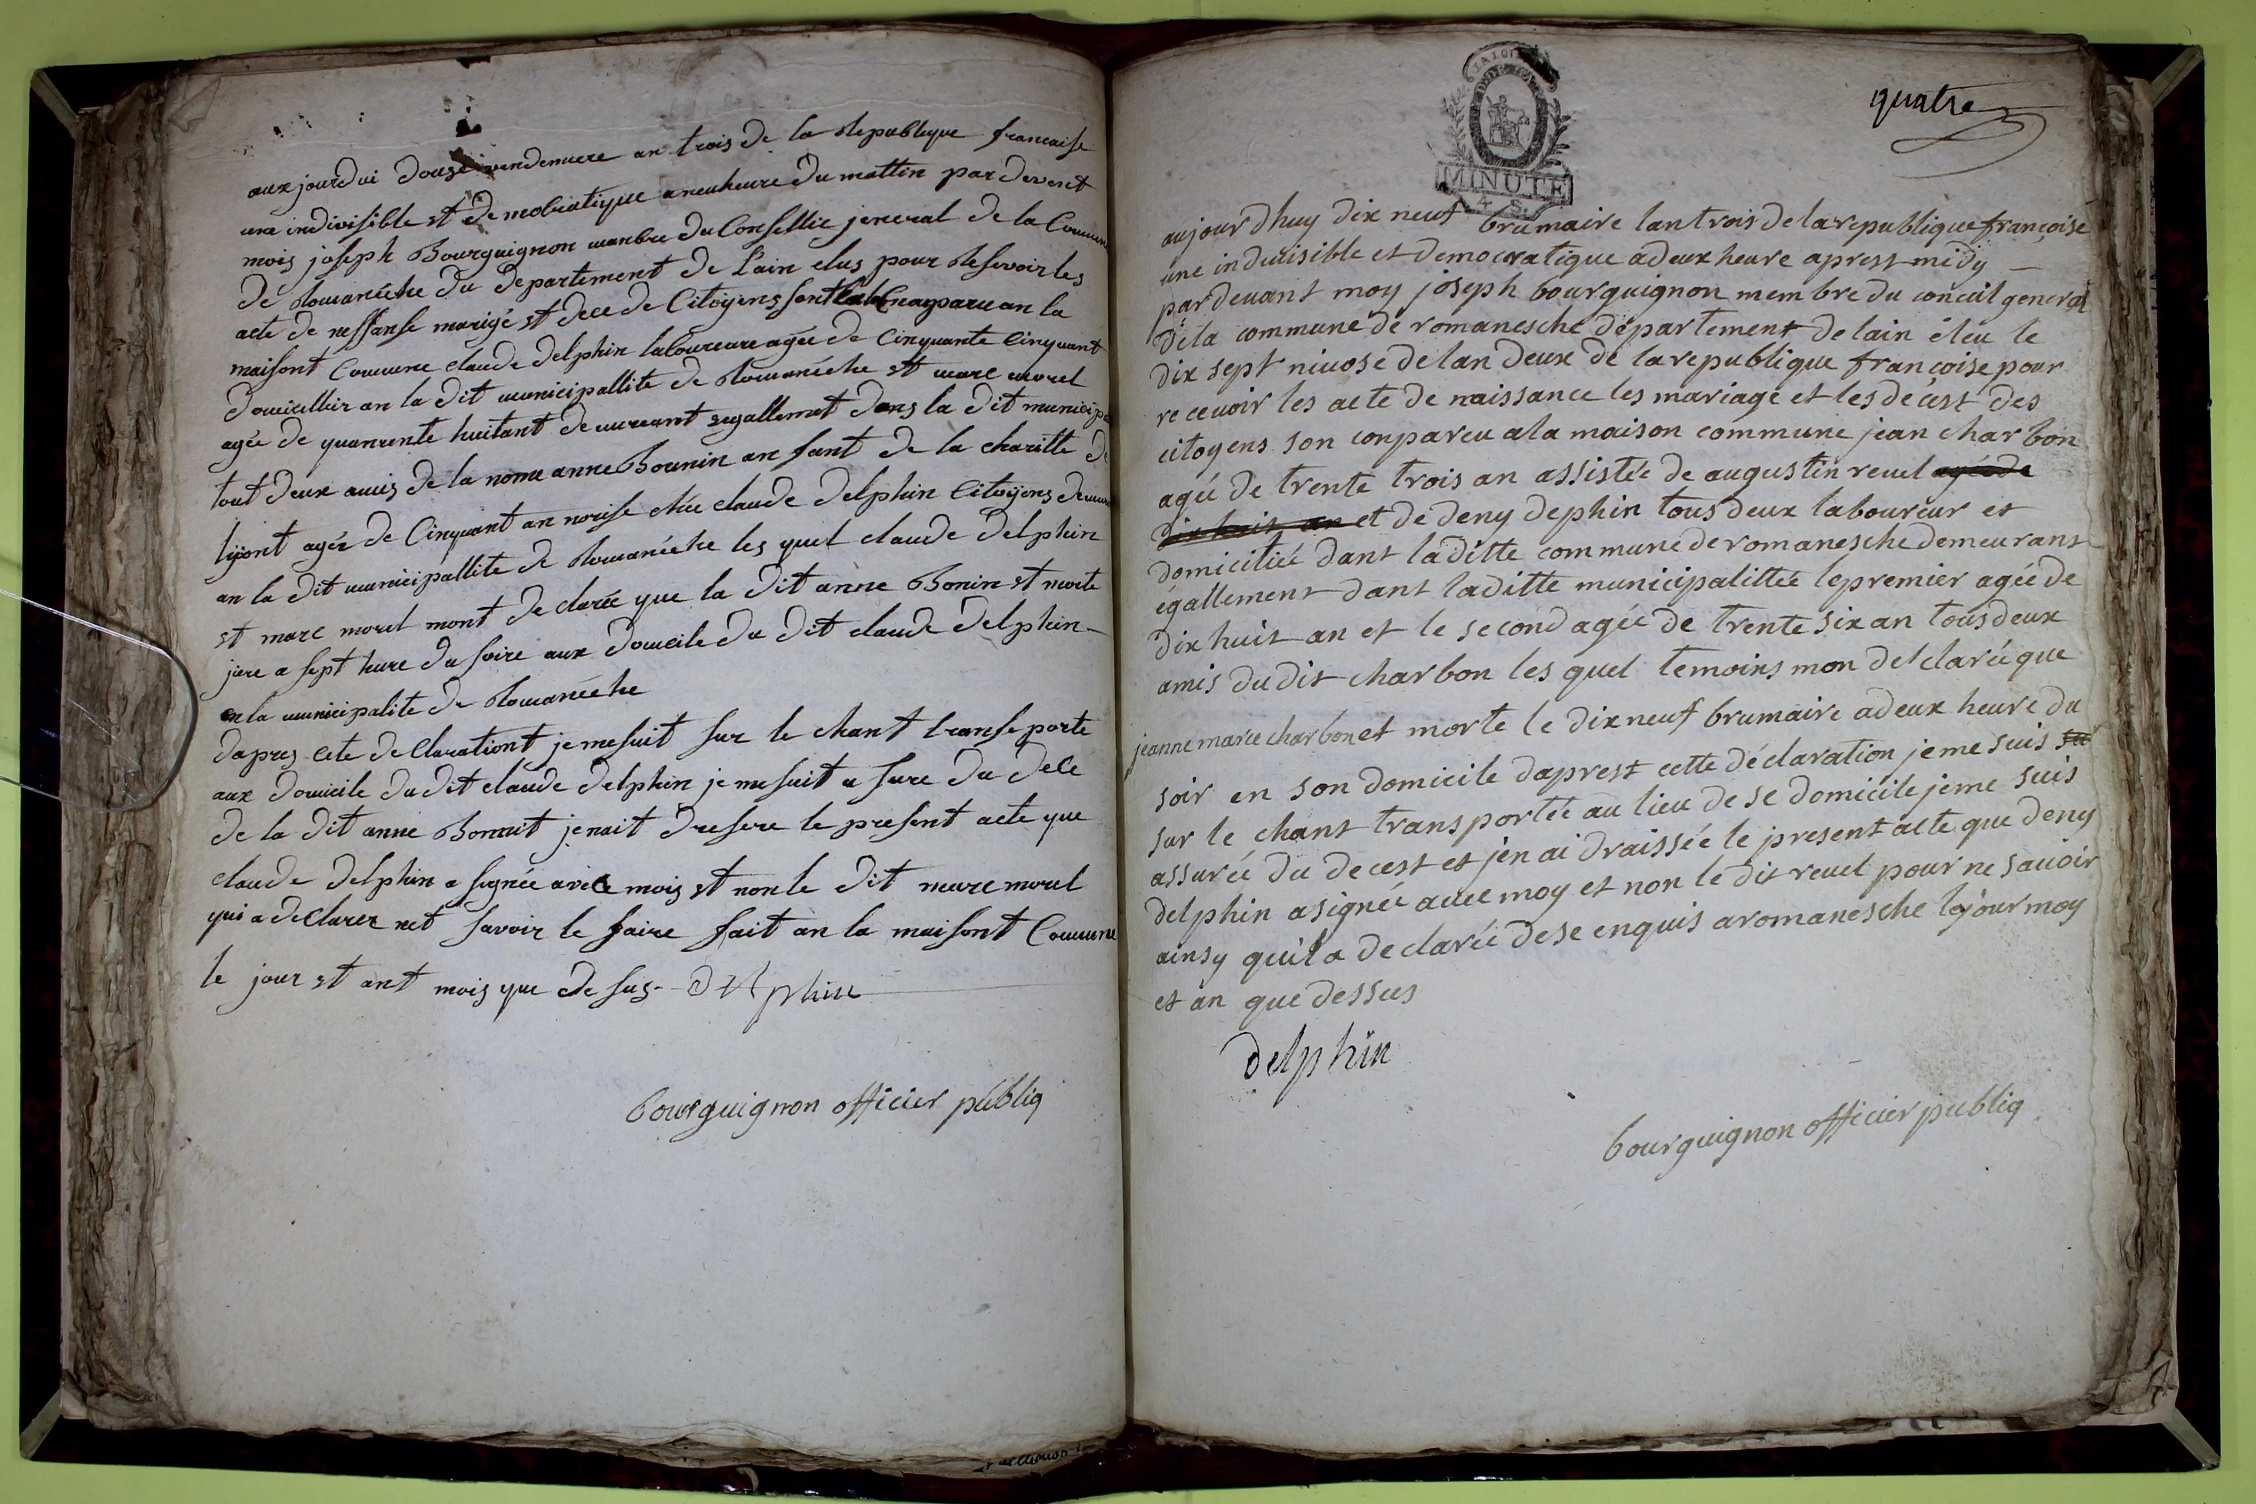 aux jourdui douze vendemiere an trois de la Republeque francaise
une indivisible et de mocratique a neuheure du mattin par devent
mois joseph Bourguignon manbre du Consellie jeneral de la Commun
de Romanéche du departement de Lain elus pour Resevoir les
acte de nessanse marigé et dece de Citoyens sont Comparu an la
maisont Commune claude delphin laboureure agée de Cinquante Cinquant
domicillier an la dit municipallite de Romanéche et marc morel
agée de quanrente huitant demeurant segallement dans la dit municipa
tout deux amis de la nome anne Bounin an fant de la charitte de
lyont agée de Cinquant an nourise chée claude delphin Citoyens demeura
an la dit municipallite de Romanéche les quel claude delphin
et marc morel mont declarée que la dit anne Bonin et morte
jere a sept hure du soire aux domicile du dit claude delphin
en la municipalite de Romanéche
dapres cete declarationt je mesuit sur le chant transeporte
aux domicile du dit claude delphin je mesuit a sure du dece
de la dit anne Bonnit jenait dresere le present acte que
claude delphin a signée avec mois et non le dit marc morel
qui a declarer net savoir le faire fait an la maisont Commune
le jour et ant mois que desus delphin
bourguignon officier publiq
quatre
LA LOI
MINUTE
4. S.
aujourdhuy dix neuf brumaire lan trois de la republique françoise
une indivisible et democratique a deux heure aprest midy
pardevant moy joseph bourguignon membre du conceil general
de la commune de romanesche departement de lain éleu le
dix sept nivose de lan deux de la republique françoise pour
recevoir les acte de naissance les mariage et les décest des
citoyens son conpareu a la maison commune jean charbon
agée de trente trois an assistée de augustin revel agée de
dix huit an et de deny dephin tous deux laboureur et
domiciliée dant laditte commune de romanesche demeurans
égallement dant laditte municipalittée le premier agée de
dix huit an et le second agée de trente six an tous deux
amis du dit charbon les quel temoins mon desclarée que
jeanne marie charbon et morte le dix neuf brumaire a deux heure du
soir en son domicile daprest cette déclaration je me suis su
sur le chant transportée au lieu de se domicile je me suis
assurée du decest et jen ai draissée le present acte que deny
delphin a signée avec moy et non le dit revel pour ne savoir
ainsy quil a declarée de se enquis a romanesche le jour moy
et an que dessus
delphin
bourguignon officier publiq